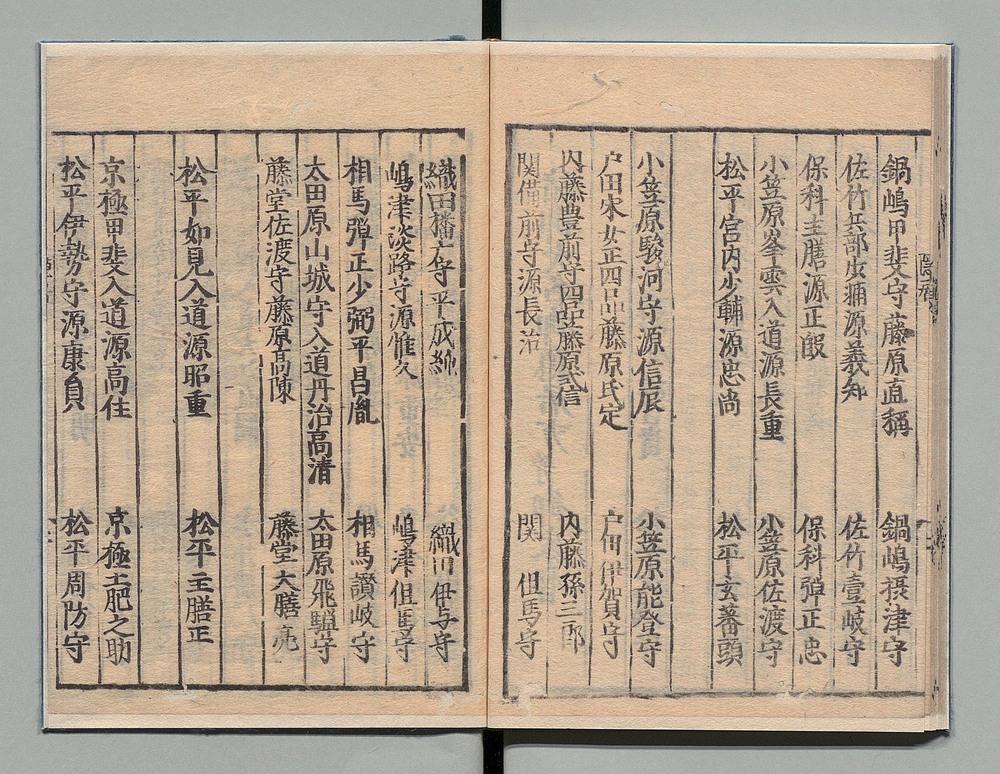 鍋嶋甲斐守藤原直稱 鍋嶋摂津守
佐竹兵部少輔源義知 佐竹壹岐守
保科主膳源正殷 保科弾正忠
小笠原峯雲入道源長重 小笠原佐渡守
松平宮内少輔源忠尚 松平玄蕃頭
小笠原駿河守源信辰 小笠原能登守
戸田采女正四品藤原氏定 戸田伊賀守
内藤豊前守四品藤原弌信 内藤孫三郎
関備前守源長治 関 但馬守
織田播广守平成純 織田伊与守
嶋津淡路守源惟久 嶋津但馬守
相馬弾正少弼平昌胤 相馬讃岐守
太田原山城守入道丹治高清 太田原飛騨守
藤堂佐渡守藤原高陳 藤堂大膳亮
松平如見入道源昭重 松平主膳正
京極甲斐入道源高住 京極土肥之助
松平伊勢守源康員 松平周防守